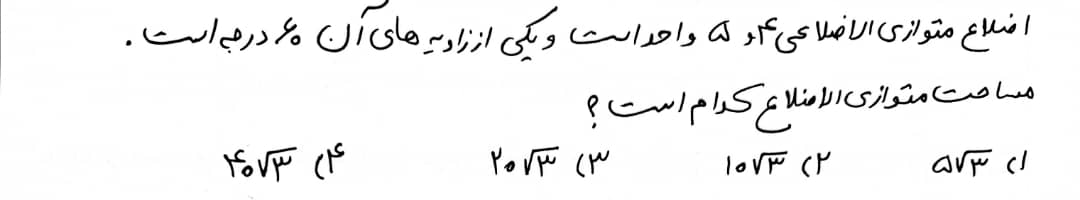 اضلاع متوازی الاضلاعی ۴ و ۵ واحد است و یکی از زاویه های آن ۶۰ درجه است.
مساحت متوازی الاضلاع کدام است؟
۱) ۵√۳ ۲) ۱۰√۳ ۳) ۲۰√۳ ۴) ۴۰√۳